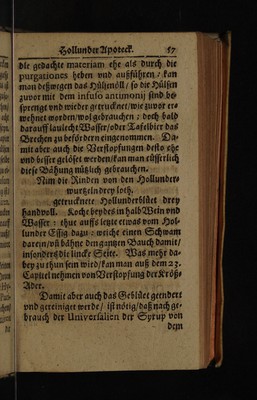 Hollunder Apoteck. 57
die gedachte materiam ehe als durch die
purgationes heben vnd außführen / kan
man deßwegen das Hülsenöll / so die Hülsen
zuvor mit dem infuso antimonij sind be-
sprengt vnd wieder getrucknet / wie zuvor er-
wehnet worden / wol gebrauchen : doch bald
darauff laulecht Wasser / oder Tafelbier das
Brechen zu befördern eingenommen. Da-
mit aber auch die Verstopfungen desto ehe
vnd besser gelöset werden / kan man eüsserlich
diese Bähung nützlich gebrauchen.
Nim die Rinden von den Hollunder-
wurtzeln drey loth.
getrucknete Hollunderblüet drey
handvoll. Koche beydes in halb Wein vnd
Wasser : thue auffs letzte etwas vom Hol-
lunder Essig dazu : weiche einen Schwam
darein / vñ bähne den gantzen Bauch damit /
insonders die lincke Seite. Was mehr da-
bey zu thun sein wird / kan man auß dem 23.
Capitel nehmen von Verstopfung der Krößs
Ader.
Damit aber auch das Geblüet geendert
vnd gereiniget werde / ist nötig / daß nach ge-
brauch der Universalien der Syrup von
dem